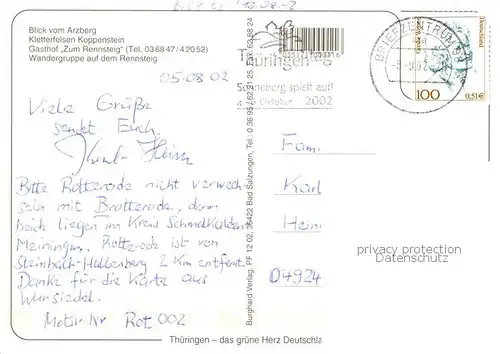 Blick vom Arzberg
Kletterfelsen Koppenstein
Gasthof „Zum Rennsteig" (Tel. 036847/42052)
Wandergruppe auf dem Rennsteig
05.08.02
Viele Grüße
sendet Euch
Bitte Rotterode nicht verwech
seln mit Brotterode, denn
beide liegen im Kreis Schmalkalden
Meiningen. Rotterode ist von
Steinbach-Hallenberg 2 Km entfernt.
Danke für die Karte aus
Wunsiedel.
Motiv Nr Rot 002
Burghard Verlag, PF 12 02, 36422 Bad Salzungen, Tel.: 0 36 95 / 62 21 25, Fax 62 88 24
Thüringen
Sonneberg spielt auf!
Oktober 2002
BRIEFZENTRUM
Deutschland
100
0,51€
Fam.
Karl
Hein
04924
privacy protection
Datenschutz
Thüringen – das grüne Herz Deutschla